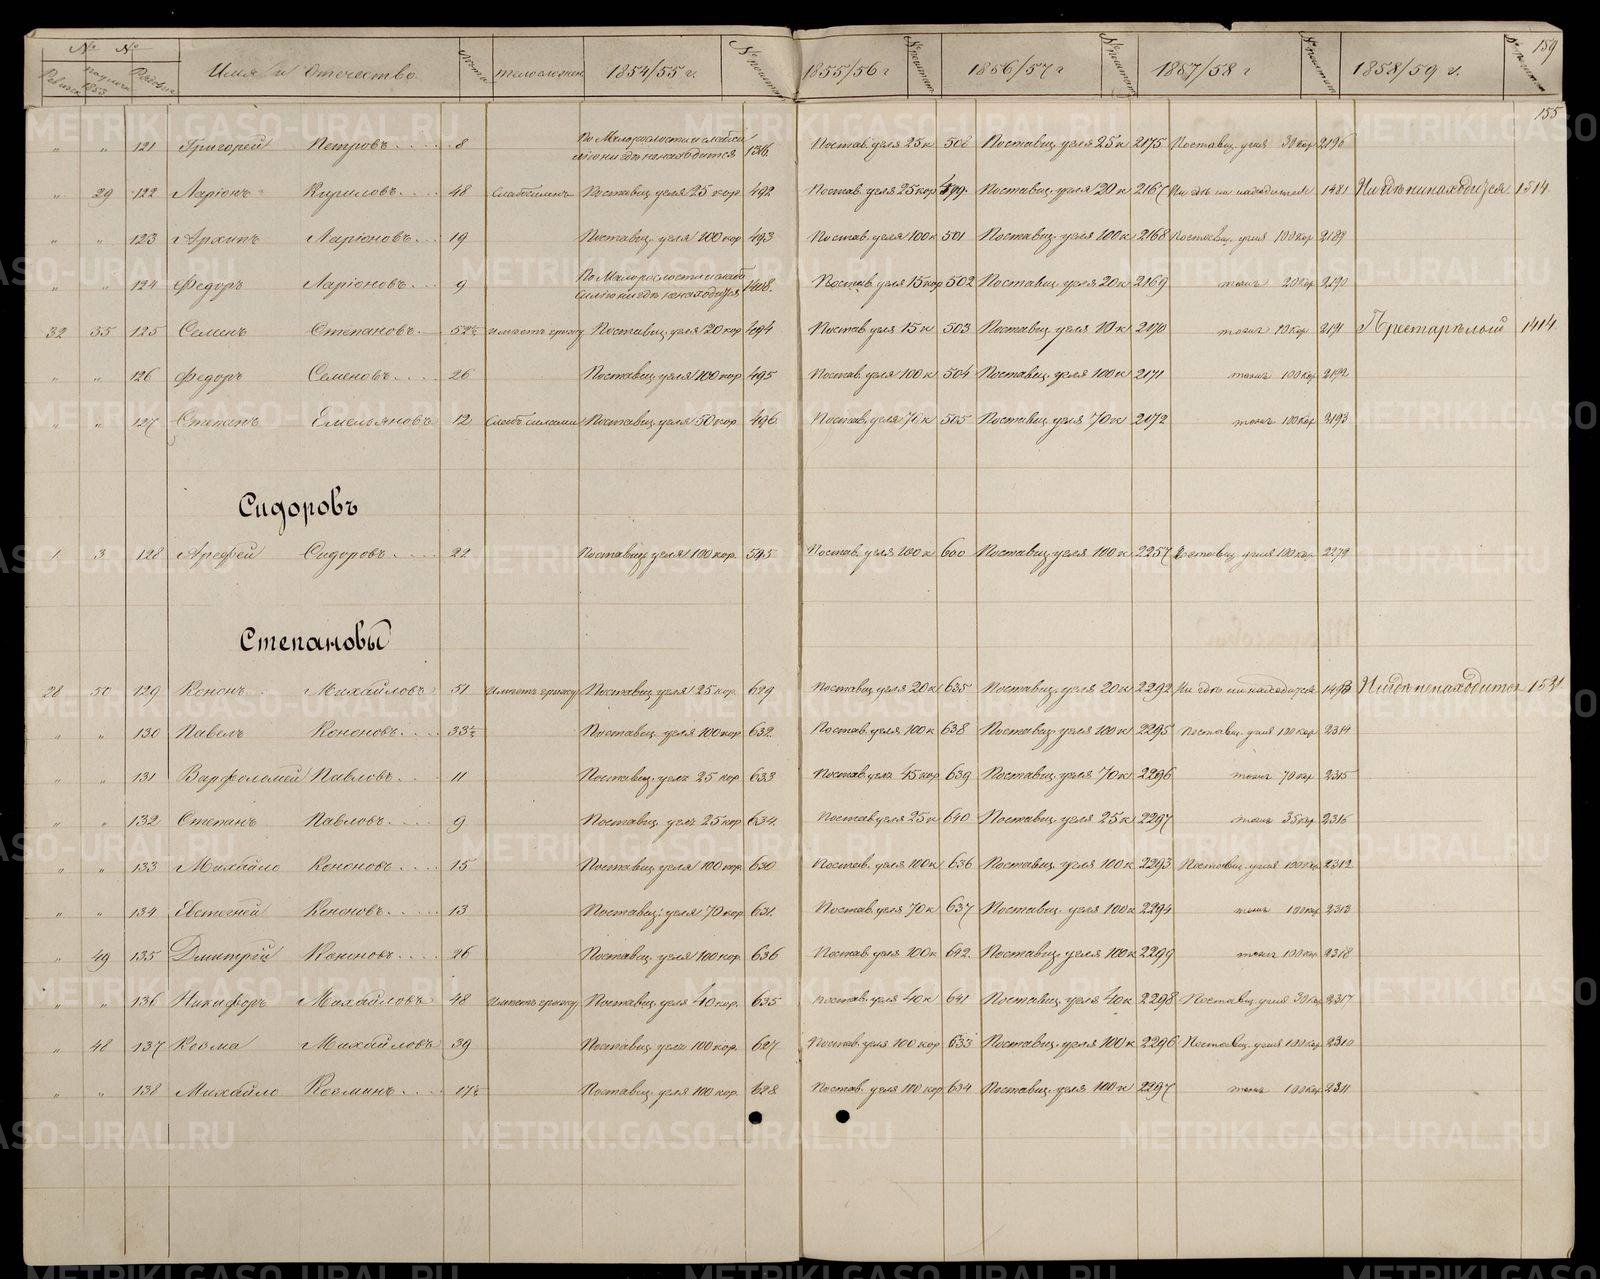 № № 159
Имя и Отчество Лета 1854/55 г. 1855/56 г 1856/57 г 1857/58 г 1858/59 г.
155
" " 121 Григорей Петровъ 8 По Малорослости и слабосилию нигдѣ ненаходится 1316. Постав. угля 25 к 508 Поставщ. угля 25 к 2175 Поставщ. угля 30 кор 2196
" 29 122 Ларіонъ Кириловъ 48 Слабосиленъ Поставщ. угля 25 кор 492 Постав. угля 25 кор 499. Поставщ. угля 20 к 2167 Ни гдѣ ни находится 1481 Ни гдѣ ни находится 1514.
" " 123 Архипъ Ларіоновъ 19 Поставщ. угля 100 кор 493 Постав. угля 100 к 501 Поставщ. угля 100 к 2168 Поставщ. угля 100 кор 2189
" " 124 Федоръ Ларіоновъ 9 По Малорослости и слабосилию нигдѣ ненаходится 1408. Постав. угля 15 кор 502 Поставщ. угля 20 к 2169 тоже 20 кор 2190
32 35 125 Семенъ Степановъ 52½ имѣетъ грыжу Поставщ. угля 20 кор 494 Постав угля 15 к 503 Поставщ. угля 10 к 2170 тоже 10 кор 2191 Престарѣлый 1414.
" " 126 Федоръ Семеновъ 26 Поставщ. угля 100 кор 495 Постав. угля 100 к 504 Поставщ. угля 100 к 2171 тоже 100 кор 2192
" " 127 Степанъ Емельяновъ 12 Слабъ силами Поставщ. угля 50 кор. 496 Постав. угля 70 к 505 Поставщ. угля 70 к 2172 тоже 100 кор 2193
Сидоровъ
1 3 128 Арефей Сидоровъ 22 Поставщ угля 100 кор. 595 Постав. угля 100 к 600 Поставщ угля 100 к 2257 Поставщ угля 100 кор. 2279
Степановы
28 50 129 Кононъ Михайловъ 51 имѣетъ грыжу Поставщ. угля 25 кор. 629 Поставщ угля 20 к 635 Поставщ. угля 20 к 2292 Ни гдѣ ни находится 1493 Нигдѣ ненаходится 1531
" " 130 Павелъ Кононовъ 33½ Поставщ. угля 100 кор 632. Постав. угля 100 к 638 Поставщ. угля 100 к 2295 Поставщ. угля 100 кор 2314
" " 131 Варфоломей Павловъ 11 Поставщ. угля 25 кор 633 Постав угля 45 кор 639 Поставщ. угля 70 к 2296 тоже 70 кор 2315
" " 132 Степанъ Павловъ 9 Поставщ. угля 25 кор 634. Постав угля 25 к 640 Поставщ. угля 25 к 2297 тоже 35 кор 2316
" " 133 Михайло Кононовъ 15 Поставщ. угля 100 кор. 630 Постав. угля 100 к 636 Поставщ. угля 100 к 2293 Поставщ. угля 100 кор 2312
" " 134 Евстегней Кононовъ 13 Поставщ: угля 70 кор 631. Постав. угля 70 к 637 Поставщ. угля 100 к 2294 тоже 100 кор 2313
" 49 135 Дмитрій Кононовъ 26 Поставщ. угля 100 кор. 636 Постав. угля 100 к 642. Поставщ. угля 100 к 2299 тоже 100 кор 2318
" " 136 Никифоръ Михайловъ 48 имѣетъ грыжу Поставщ. угля 40 кор. 635 постав. угля 40 к 641 Поставщ. угля 40 к 2298 Поставщ. угля 30 кор 2317
" 48 137 Козма Михайловъ 39 Поставщ. угля 100 кор. 627 Постав. угля 100 кор 633 Поставщ. угля 100 к 2296 Поставщ. угля 100 кор 2310
" " 138 Михайло Козминъ 17½ Поставщ. угля 100 кор. 628 Постав. угля 100 кор 634 Поставщ. угля 100 к 2297 тоже 100 кор 2311
METRIKI.GASO-URAL.RU